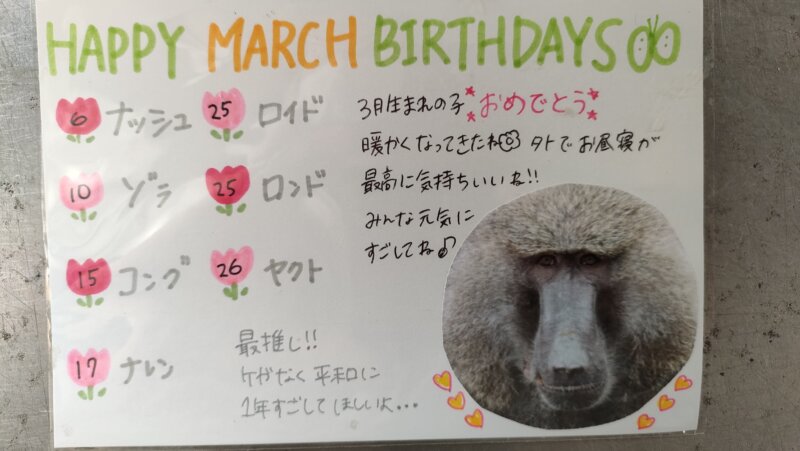 HAPPY MARCH BIRTHDAYS
6 ナッシュ 25 ロイド
10 ゾラ 25 ロンド
15 コング 26 ヤクト
17 ナレン
3月生まれの子 おめでとう
暖かくなってきたね 外でお昼寝が
最高に気持ちいいね!!
みんな元気に
すごしてね♪
最推し!!
ケガなく平和に
1年すごしてほしいよ...